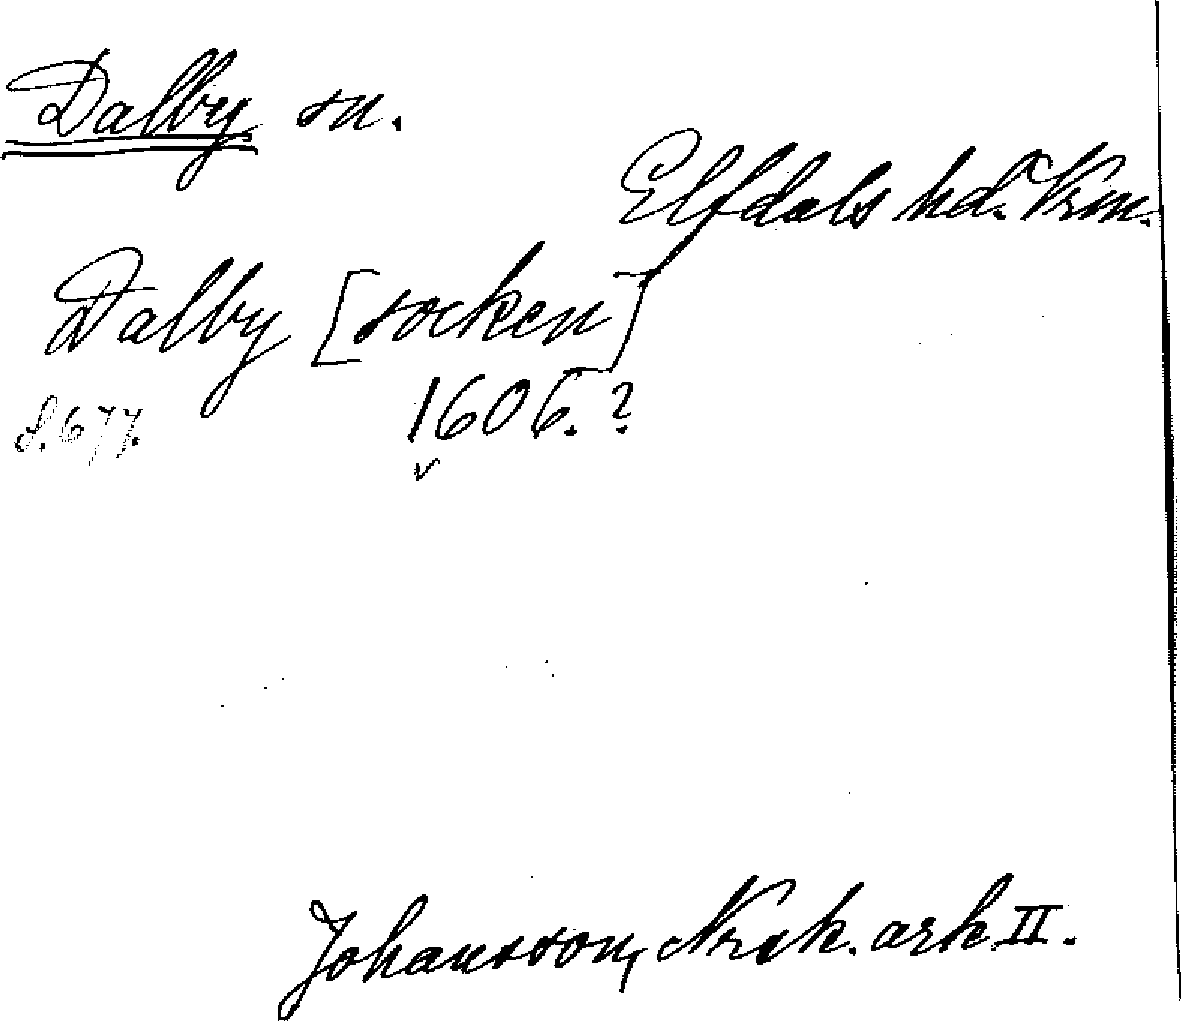 Dalby sn.
Elfdals hd. Vrm.
Dalby [socken]
1606.?
s. 677.
Johansson, Nrsk. ark II.